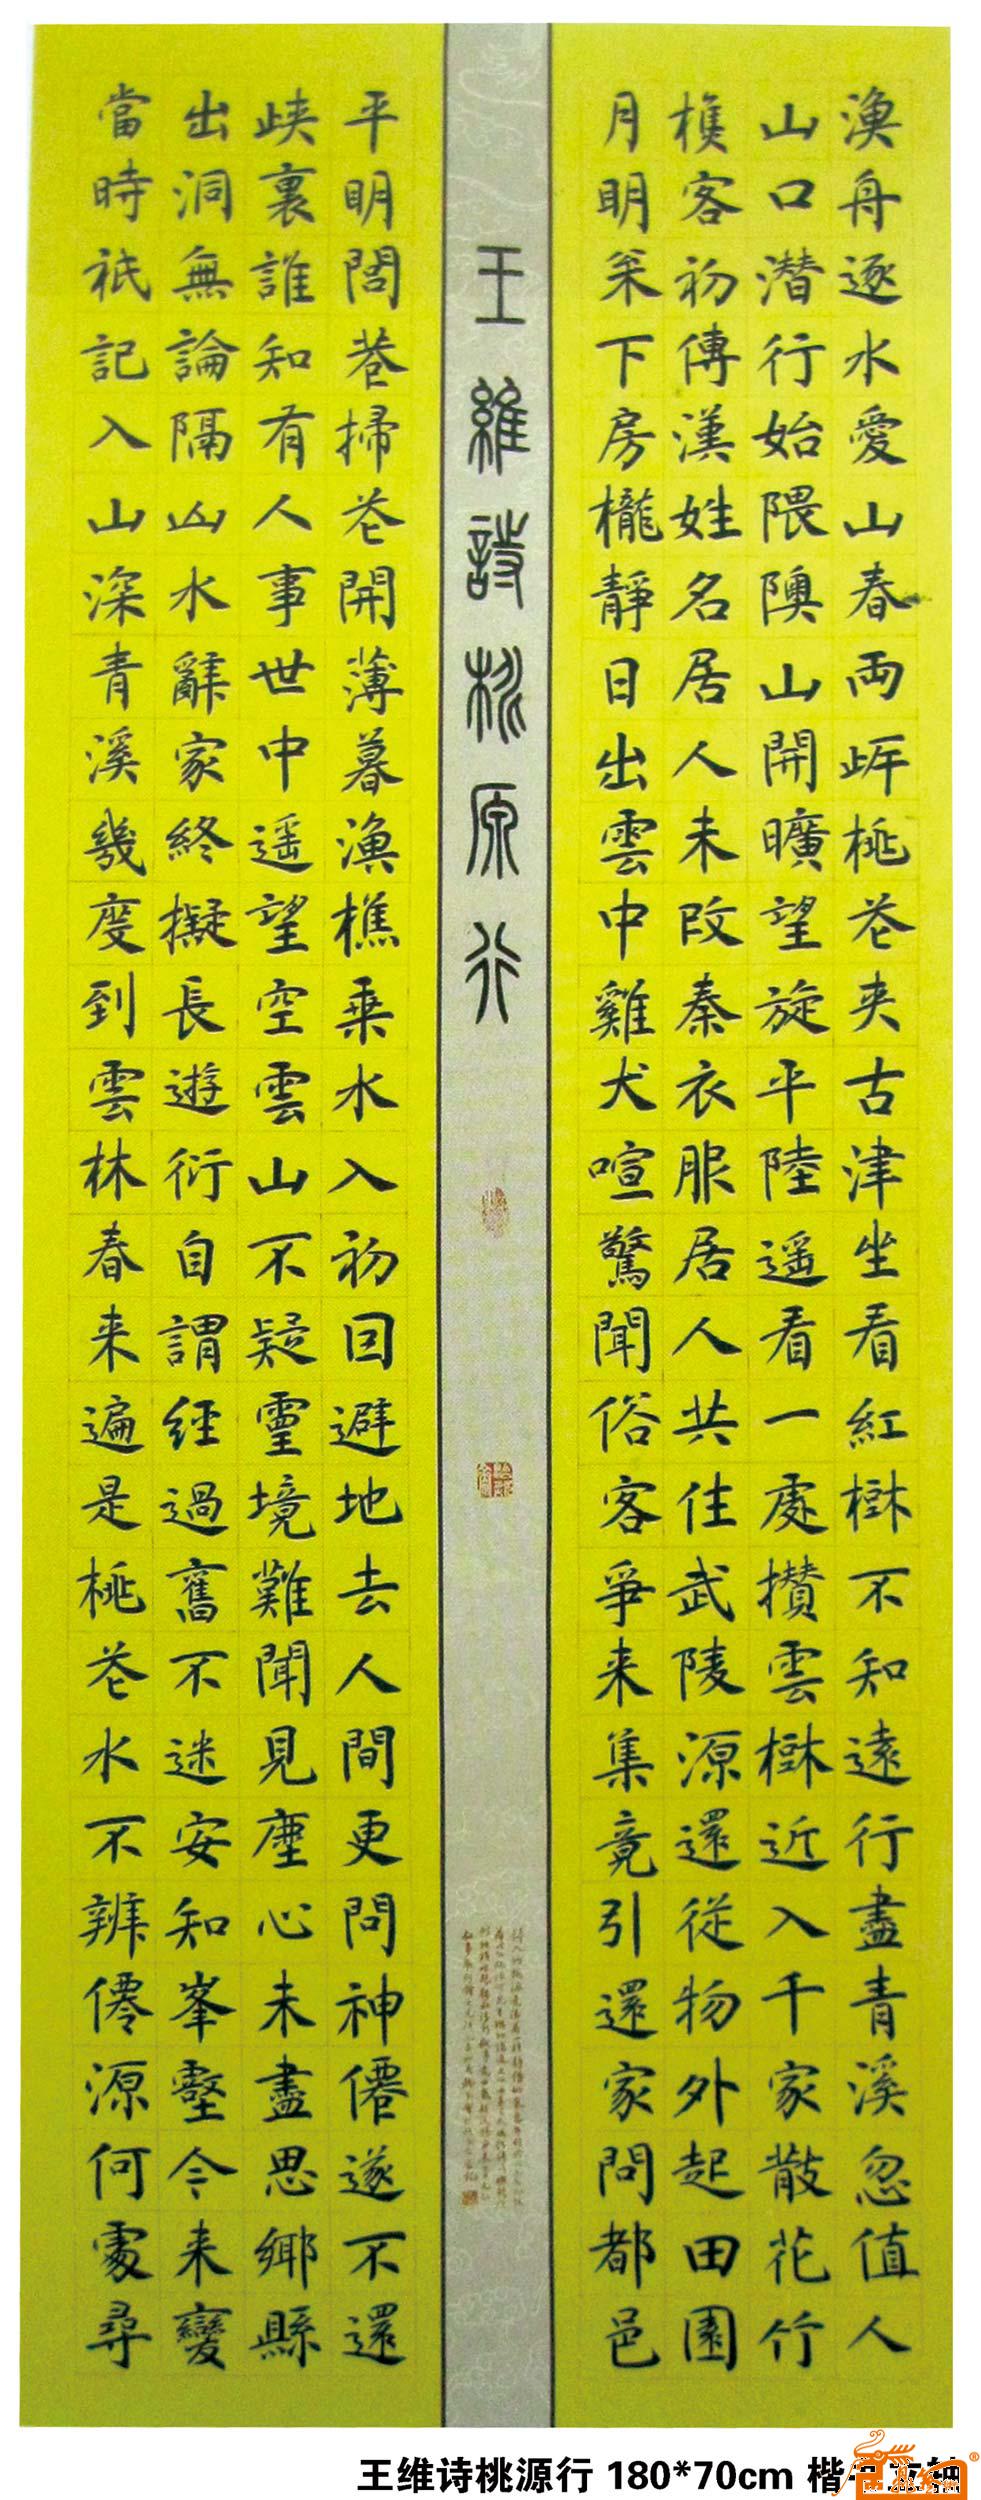 漁舟逐水愛山春両岸桃花夾古津坐看紅樹不知遠行盡青溪忽值人
山口潜行始隈隩山開曠望旋平陸遥看一處攢雲樹近入千家散花竹
樵客初傳漢姓名居人未改秦衣服居人共住武陵源還從物外起田園
月明枩下房櫳靜日出雲中雞犬喧驚聞俗客爭来集竟引還家問都邑
王維詩桃原行
平明閭巷掃花開薄暮漁樵乗水入初因避地去人間更問神僊遂不還
峽裏誰知有人事世中遥望空雲山不疑靈境難聞見塵心未盡思鄉縣
出洞無論隔山水辭家終擬長遊衍自謂經過舊不迷安知峯壑今来變
當時祇記入山深青溪幾度到雲林春来遍是桃花水不辨僊源何處尋
王维诗桃源行 180*70cm 楷书立轴